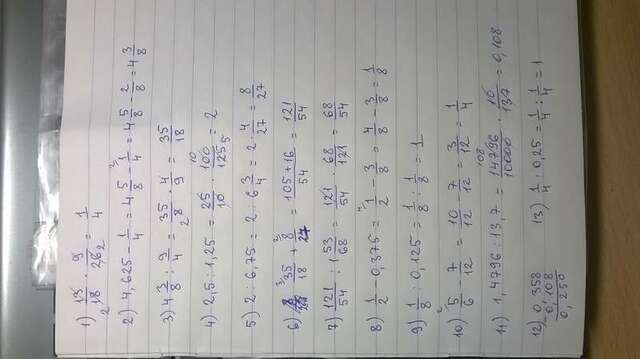 1) 13/18 · 9/26 = 1/4
2) 4,625 - 1/4 = 4 5/8 - 1/4 = 4 5/8 - 2/8 = 4 3/8
3) 4 3/8 : 9/4 = 35/8 · 4/9 = 35/18
4) 2,5 : 1,25 = 25/10 · 100/125 = 2
5) 2 : 6,75 = 2 : 6 3/4 = 2 · 4/27 = 8/27
6) 35/18 + 8/27 = 105+16/54 = 121/54
7) 121/54 : 1 53/68 = 121/54 · 68/121 = 68/54
8) 1/2 - 0,375 = 1/2 - 3/8 = 4/8 - 3/8 = 1/8
9) 1/8 : 0,125 = 1/8 : 1/8 = 1
10) 5/6 - 7/12 = 10/12 - 7/12 = 3/12 = 1/4
11) 1,4796 : 13,7 = 14796/10000 · 10/137 = 0,108
12) 0,358 - 0,108 0,250
13) 1/4 : 0,25 = 1/4 : 1/4 = 1